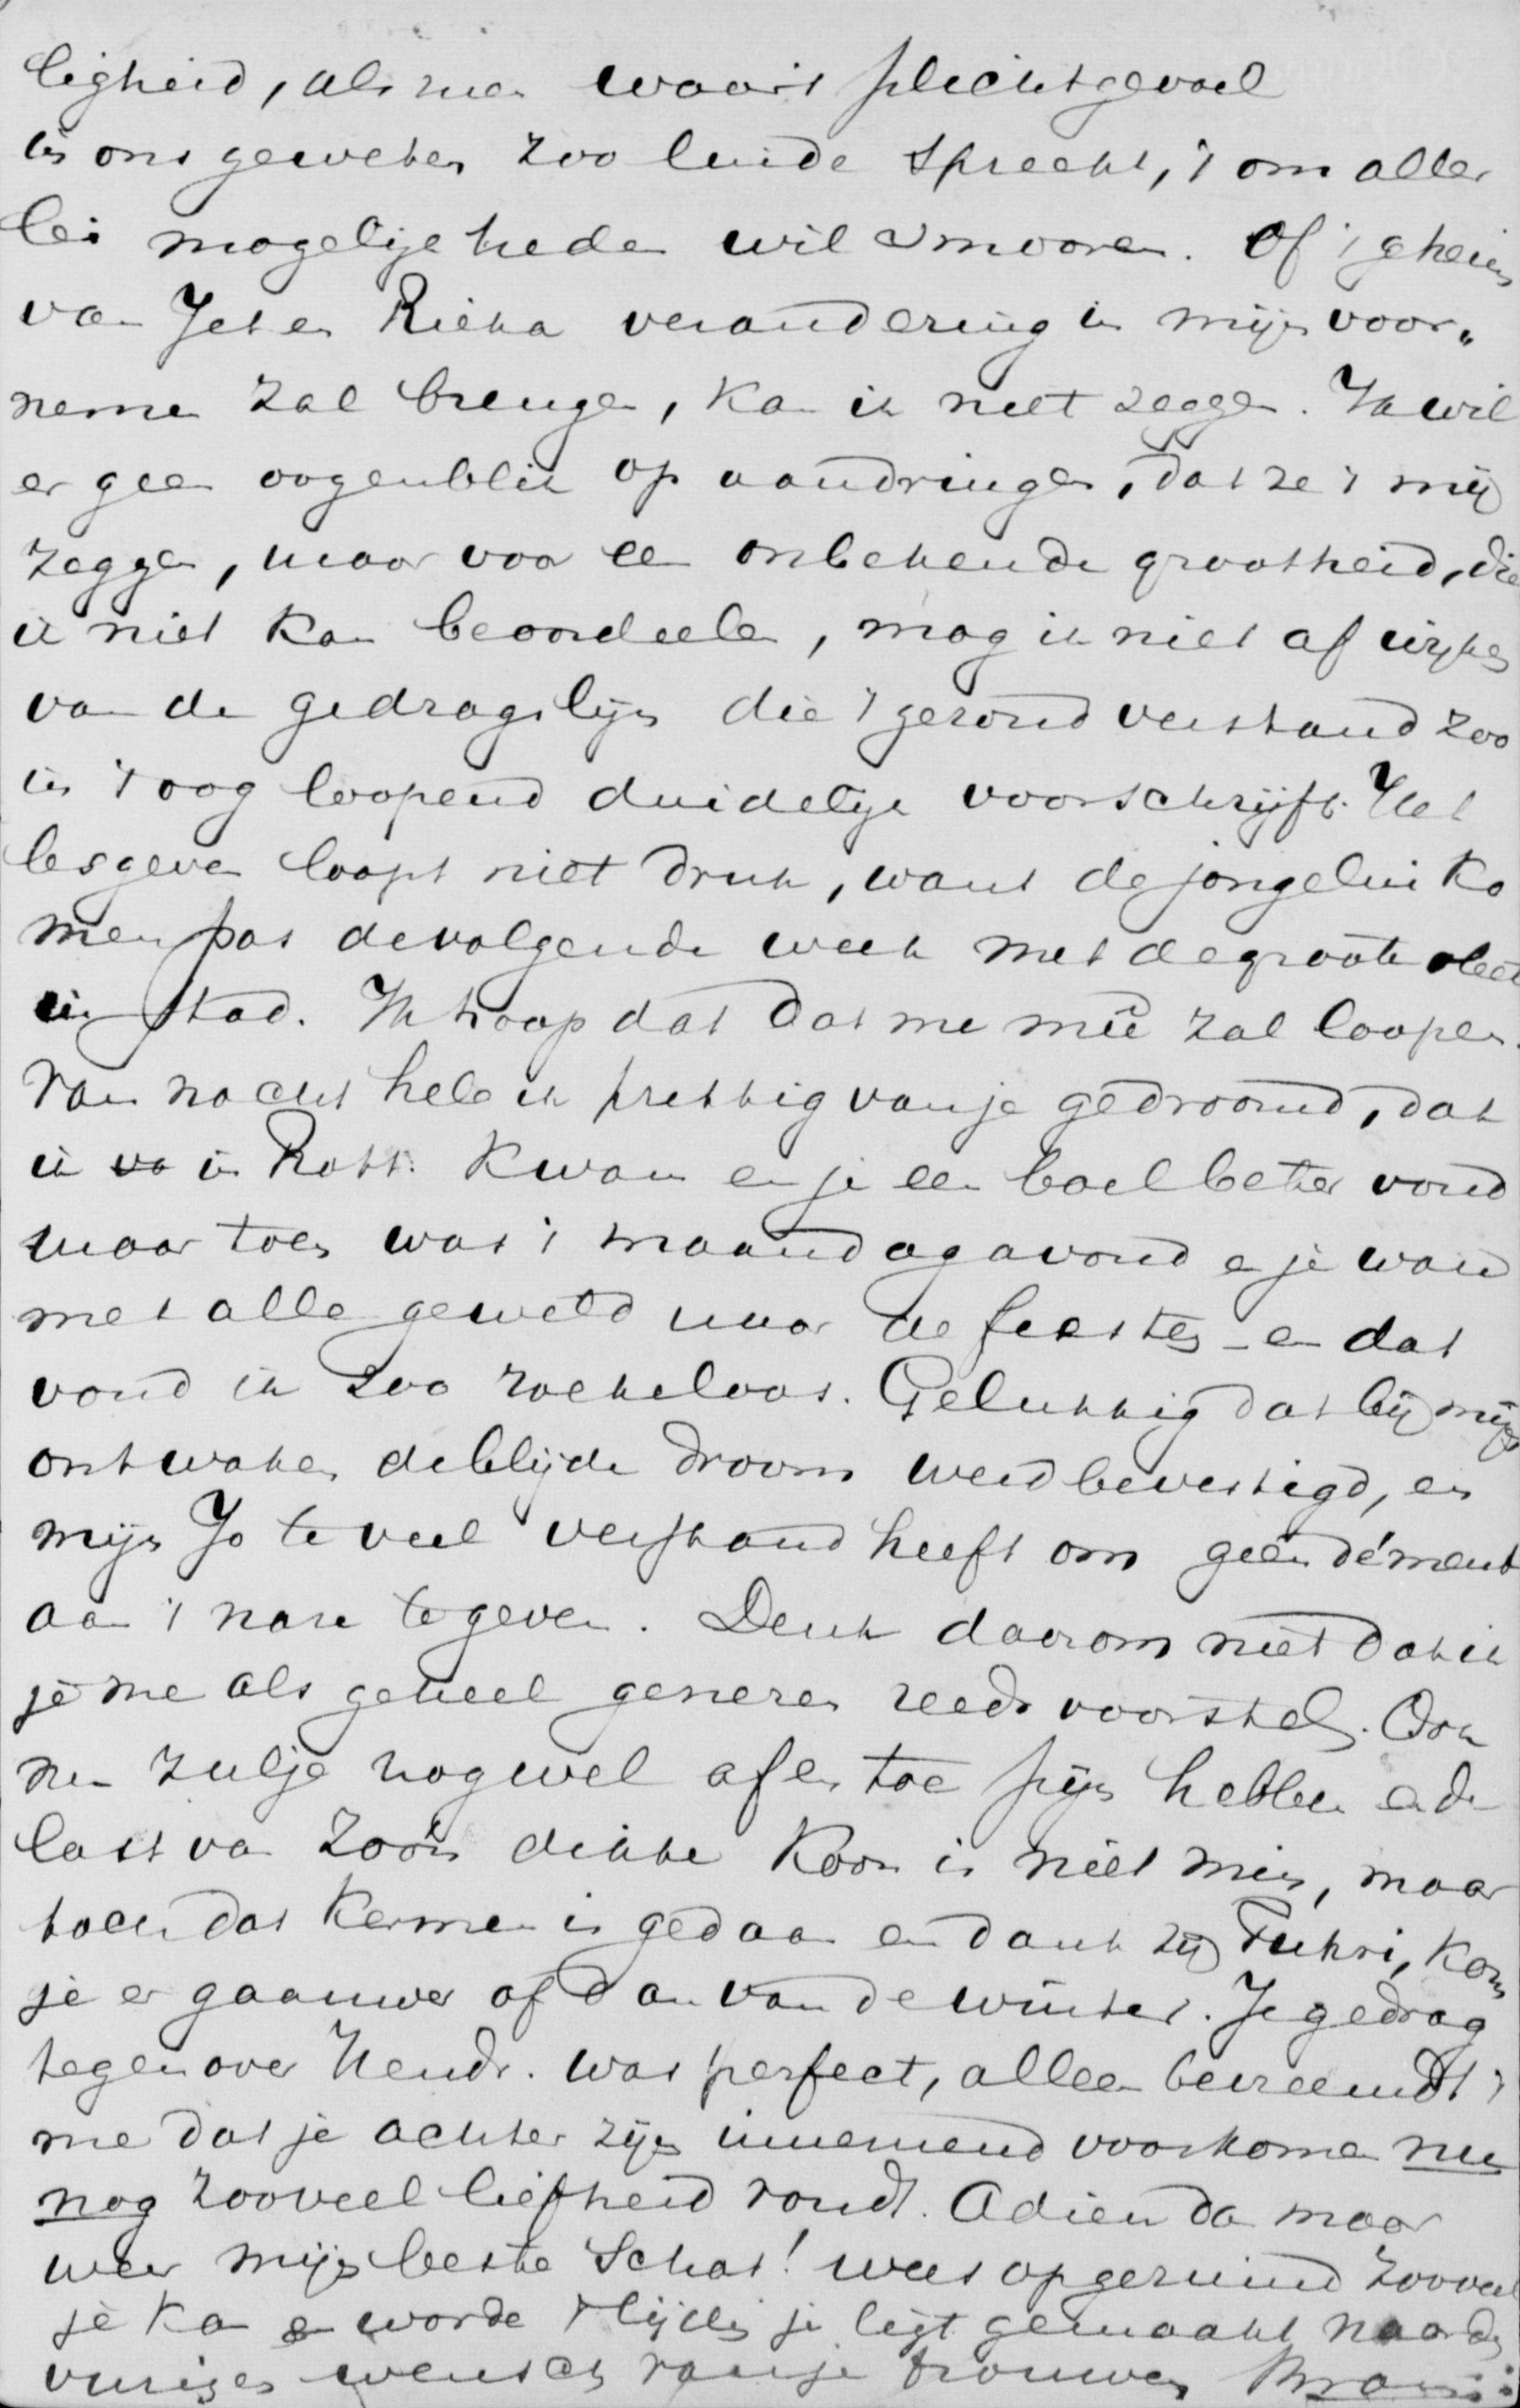 ligheid, als me waar's plichtgevoel
in ons geweten zoo luide spreekt, 't om aller
lei mogelijkheden wil smooren. Of 't geheim
van Jet en Rieka verandering in mijn voor„
nemen zal brengen, kan ik niet zeggen. Ik wil
er geen oogenblik op aandringen, dat ze 't mij
zeggen, maar voor een onbekende grootheid, die
ik niet kan beoordeelen, mag ik niet afwijken
van de gedragslijn die 't gezond verstand zoo
in 't oog loopend duidelijk voorschrijft. Het
lesgeven loopt niet druk, want de jongelui ko
men pas de volgende week met de groote
in stad. Ik hoop dat dat me meê zal loopen.
Van nacht heb ik prettig van je gedroomd, dat
ik va in Rott. kwam en je een boel beter vond
maar toen was 't maandagavond en je woud
met alle geweld naar de feesten – en dat
vond ik zoo roekeloos. Gelukkig dat bij mijn
ontwaken de blijde droom werd bevestigd, en
mijn Jo te veel verstand heeft om geen dément
aan 't nare te geven. Denk daarom niet dat ik
je me als geheel genezen reeds voorstel. Ook
nu zul je nog wel af en toe pijn hebben en de
last van zoo'n dikke koon is niet min, maar
toch dat kermen is gedaan en dank zij Fuhri, kom
je er gaauwer af dan van de winter. Je gedrag
tegenover Hendr. was perfect, alleen bevreemdt 't
me dat je achter zijn innemend voorkomen nu
nog zooveel liefheid vondt. Adieu dan maar
weer mijn beste Schat! wees opgeruimd zooveel
je kan en worde 't lijden je ligt gemaakt naar den
vurigen wensch van je trouwen